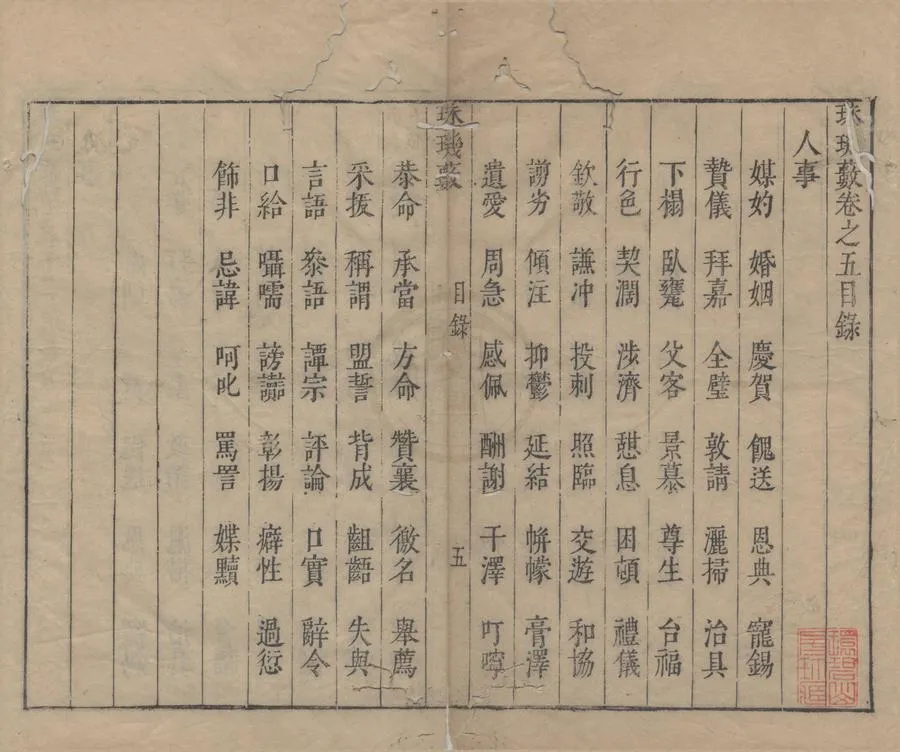 珠璣藪卷之五目錄
人事
媒妁 婚姻 慶賀 餽送 恩典 寵錫
贄儀 拜嘉 全璧 敦請 灑掃 治具
下榻 臥甕 父客 景慕 尊生 台福
行色 契濶 涉濟 憇息 困頓 禮儀
欽敬 謙冲 投刺 照臨 交遊 和協
謝劣 傾注 抑鬱 延結 帡幪 膏澤
遺愛 周急 感佩 酬謝 干澤 叮嚀
珠璣藪 目錄 五
恭命 承當 方命 贊襄 徼名 舉薦
采拔 稱謂 盟誓 背成 齟齬 失與
言語 叅語 譚宗 評論 口實 辭令
口給 囁嚅 謗讟 彰揚 癖性 過愆
飾非 忌諱 呵叱 罵詈 媟黷